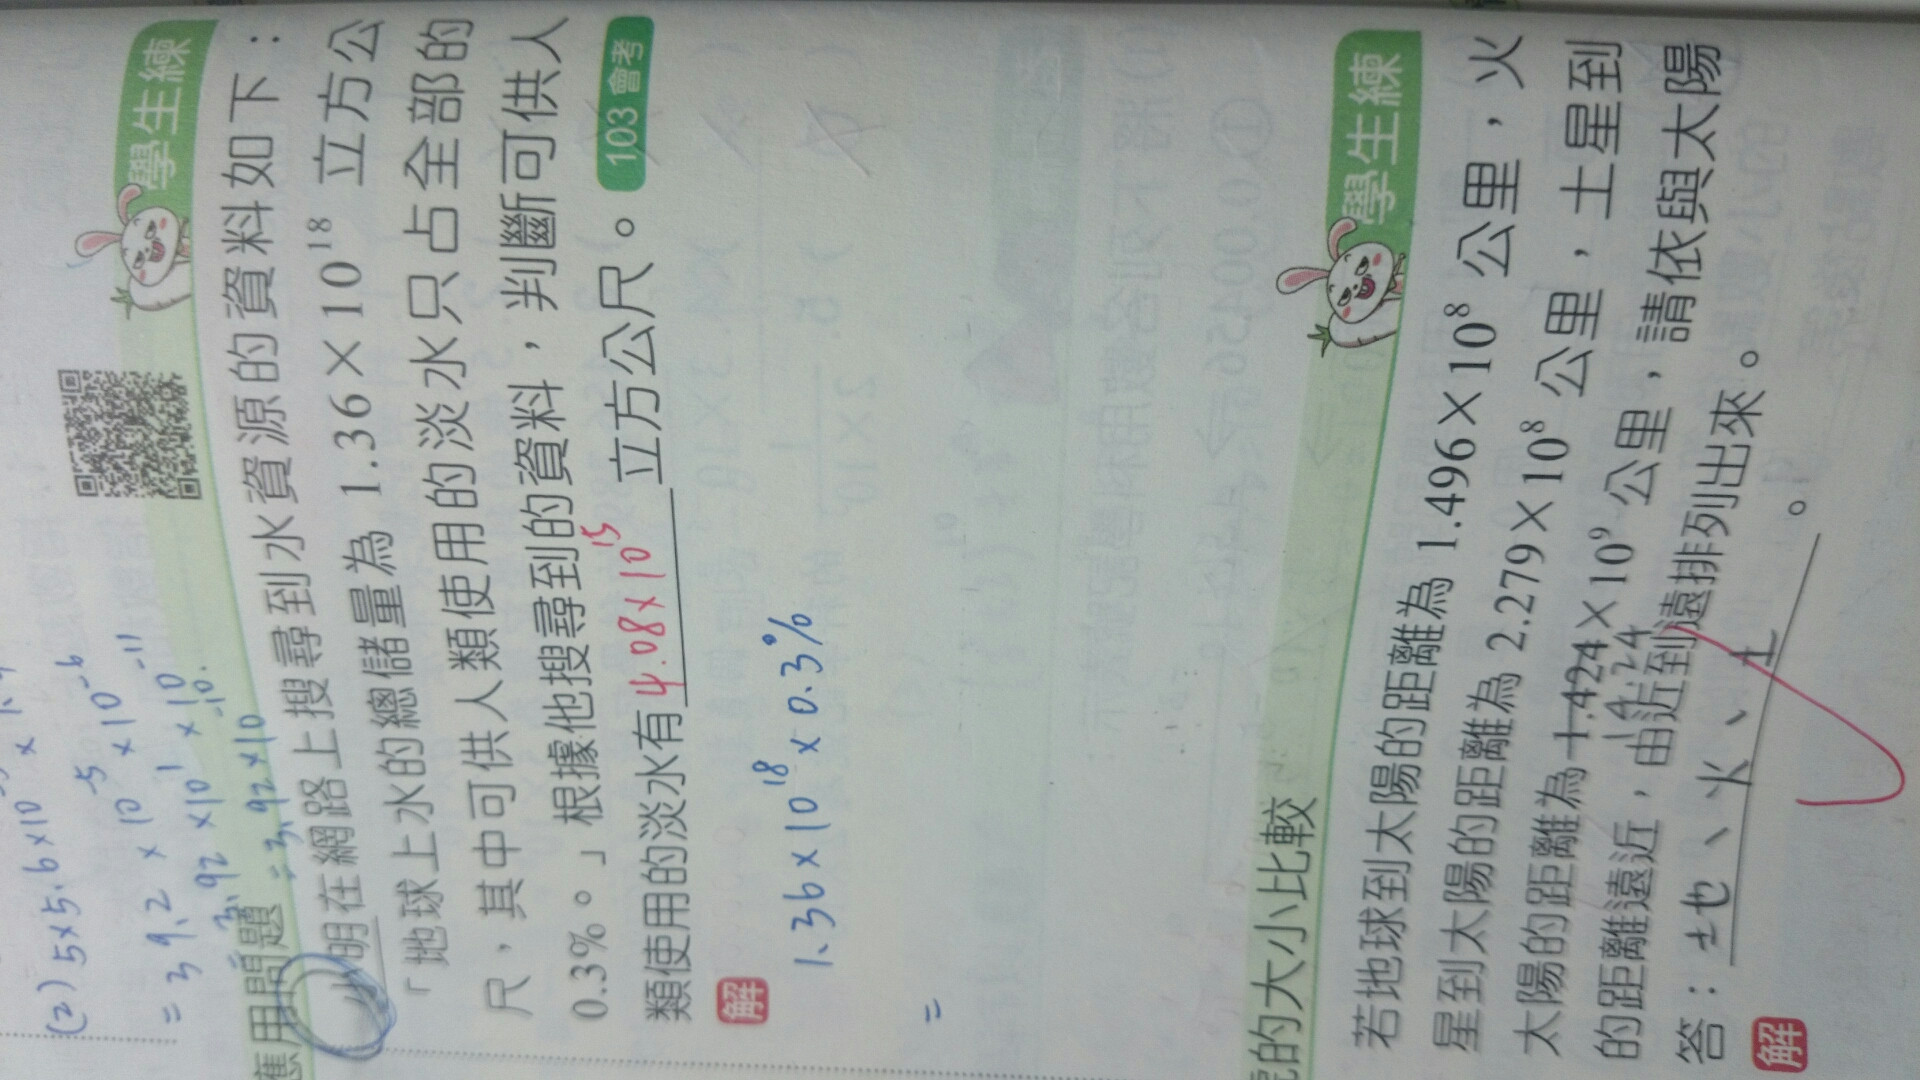 (2) 5×5.6×10
= 39.2 × 10⁻⁵ × 10⁻⁶
3.92 ×10¹ ×10⁻¹¹
= 3.92×10⁻¹⁰.
應用問題
學生練
小明在網路上搜尋到水資源的資料如下：
「地球上水的總儲量為 1.36×10¹⁸ 立方公
尺，其中可供人類使用的淡水只占全部的
0.3%。」根據他搜尋到的資料，判斷可供人
類使用的淡水有 4.08×10¹⁵ 立方公尺。 103 會考
解
1.36×10¹⁸×0.3%
=
的大小比較
學生練
若地球到太陽的距離為 1.496×10⁸ 公里，火
星到太陽的距離為 2.279×10⁸ 公里，土星到
太陽的距離為 1.424×10⁹ 公里，請依與太陽
14.24
的距離遠近，由近到遠排列出來。
答：地、火、土。
解